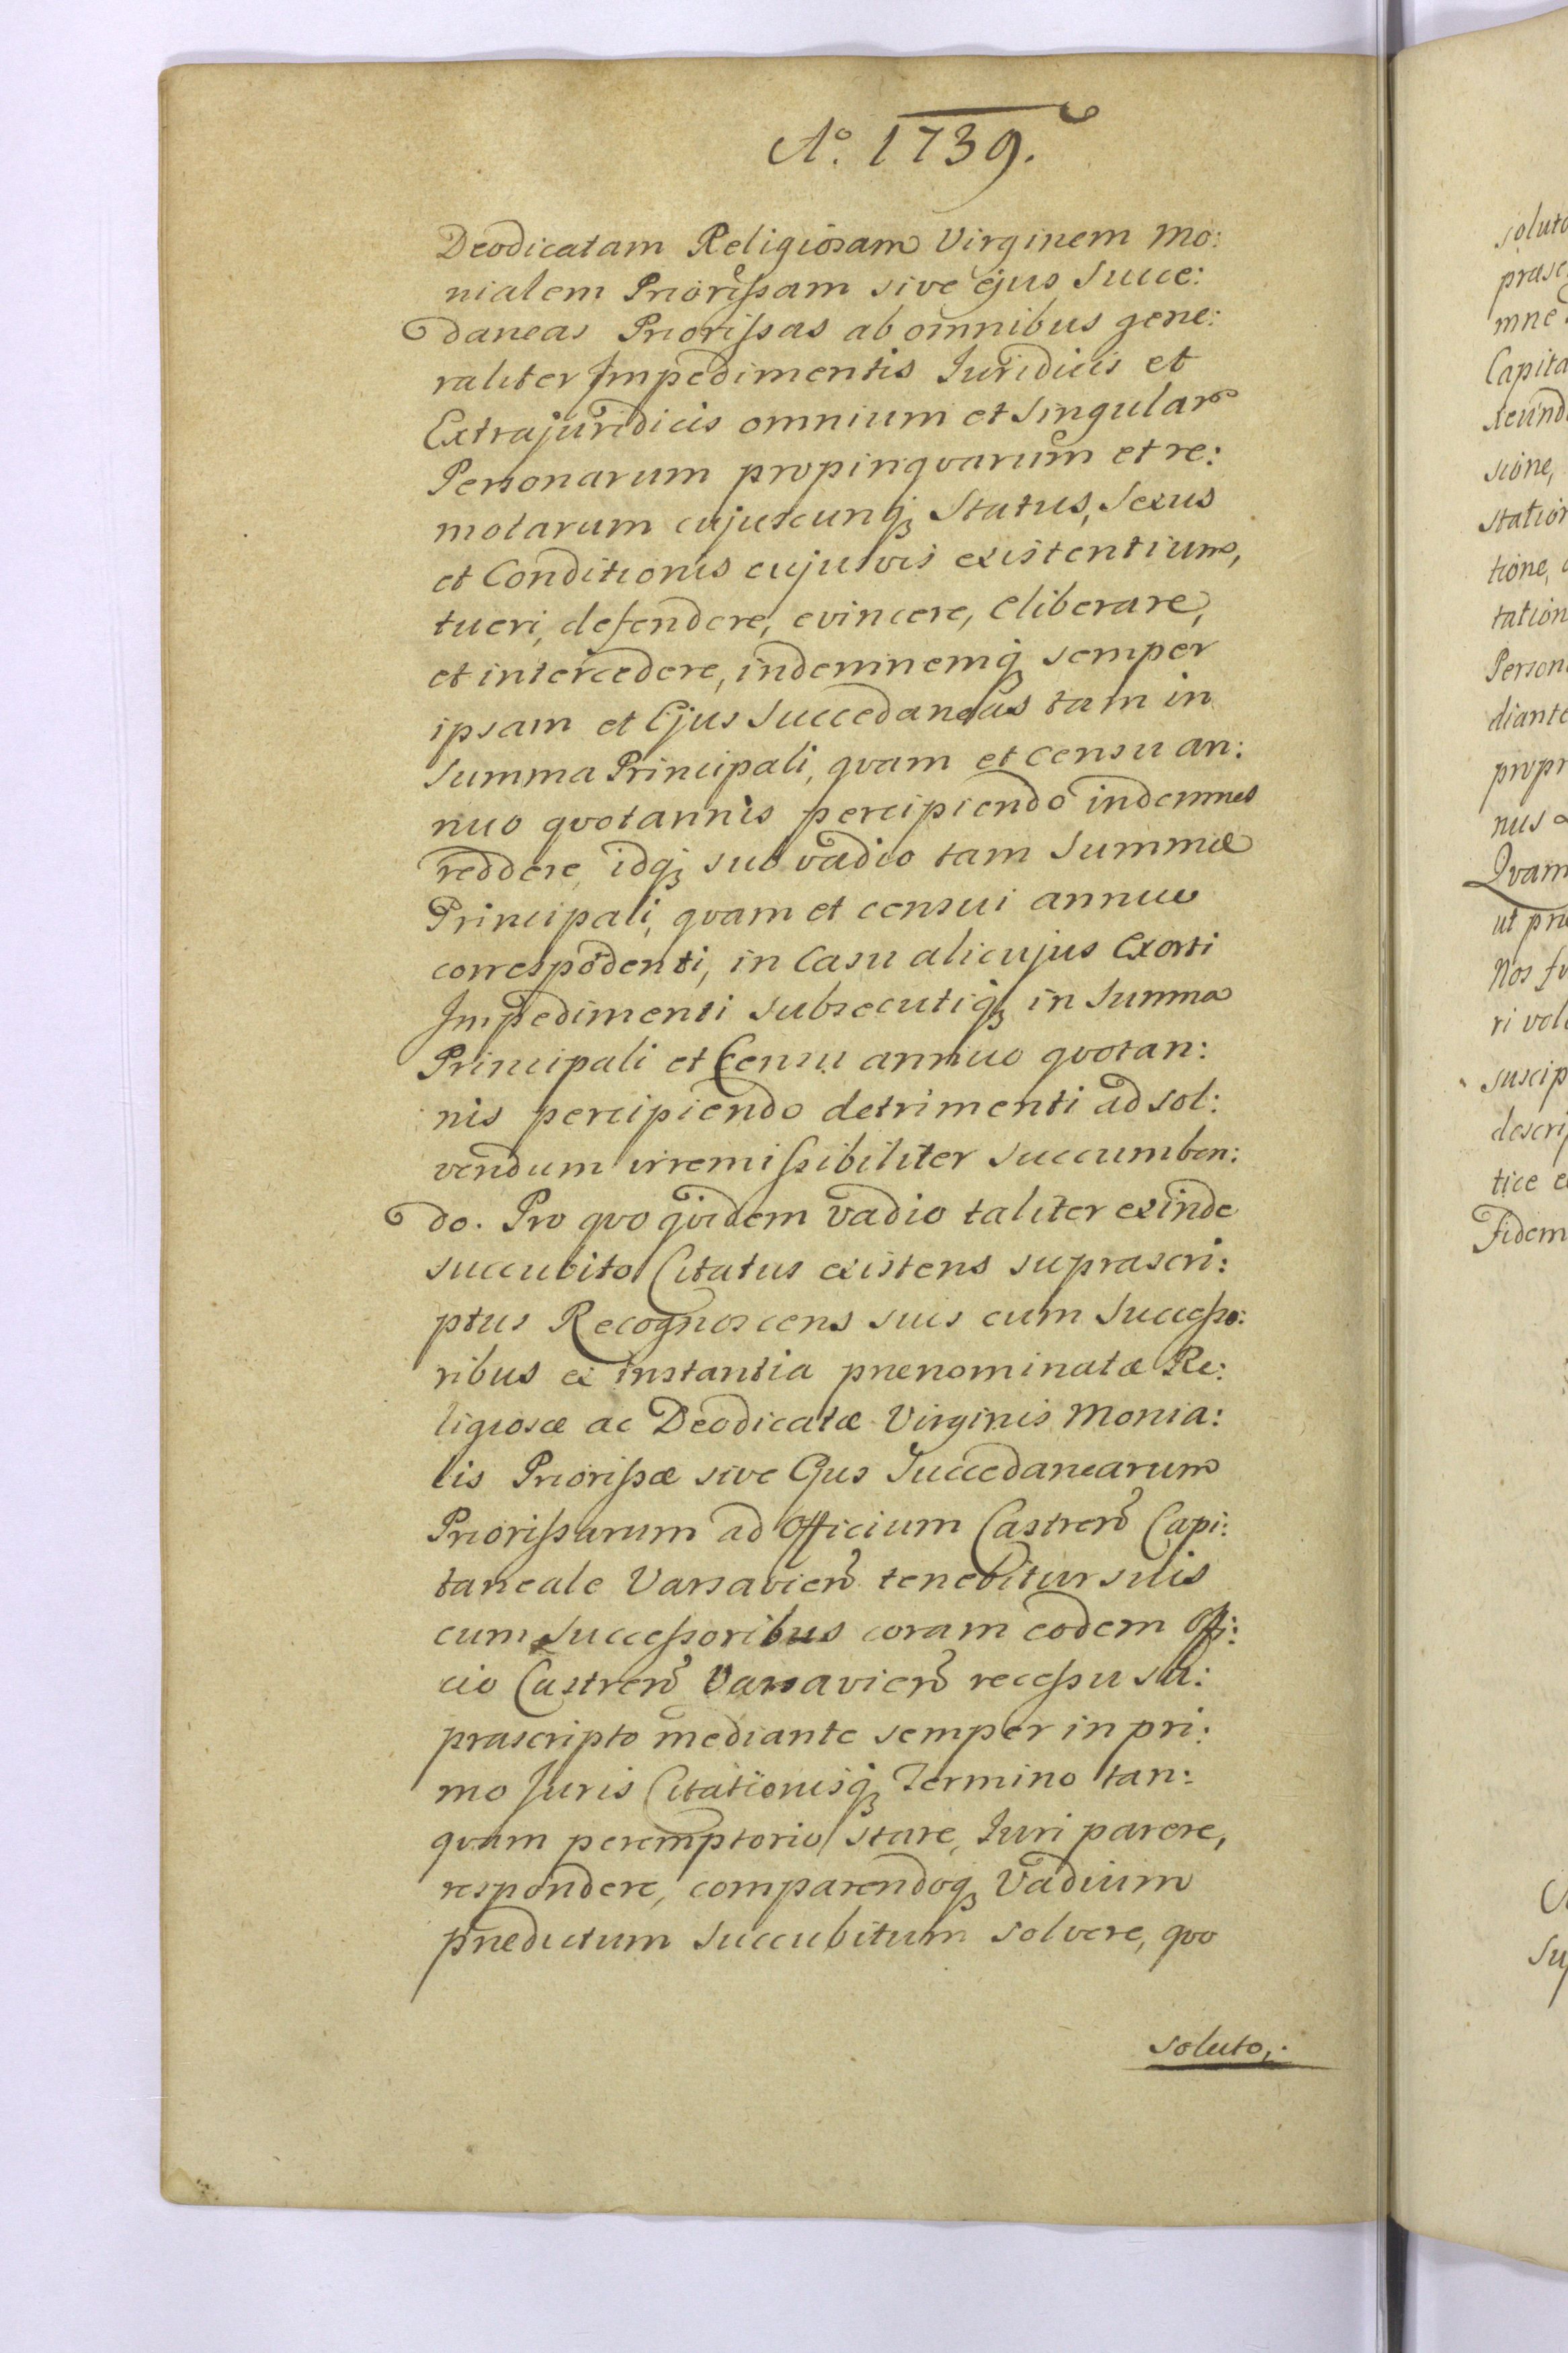 Aº. 1739.
Deodicatam Religiosam Virginem Mo:
nialem Priorißam sive ejus Succe:
daneas Priorißas ab omnibus gene:
raliter Impedimentis Juridicis et
Extrajuridicis omnium et Singular
Personarum propinqvarum et re:
motarum cujuscunq; Status, Sexus
et Conditionis cujusvis existentium,
tueri, defendere, evincere, eliberare,
et intercedere, indemnemq; semper
ipsam et Ejus Succedaneas tam in
Summa Principali, qvam et censu an:
nuo qvotannis percipiendo indemnes
reddere, idq; sub vadio tam Summæ
Principali, qvam et censui annuo
correspõdenti, in Casu alicujus Exorti
Impedimenti subsecutiq; in Summa
Principali et Censu annuo qvotan:
nis percipiendo detrimenti ad sol:
vendum irremißibiliter succumben:
do. Pro qvo qvidem vadio taliter exinde
succubito Citatus existens suprascri:
ptus Recognoscens suis cum Succeßo:
ribus ex instantia prænominatæ Re:
ligiosæ ac Deodicatæ Virginis Monia:
lis Priorißæ sive Ejus Succedanearum
Priorißarum ad Officium Castren̄ Capi:
taneale Varsavien̄ tenebitur suis
cum Succeßoribus coram eodem Offi:
cio Castren̄ Varsavien̄ receßu su:
prascripto mediante semper in pri:
mo Juris Citationisq; Termino tan:
qvam peremptorio stare, Juri parere,
respondere, comparendoq; Vadium
prædictum succubitum solvere, qvo
soluto,
soluto
Capita
sione,
tione,
Person
diante
nus
Qvam
Nos
suscip
descrip
tice
Fidem